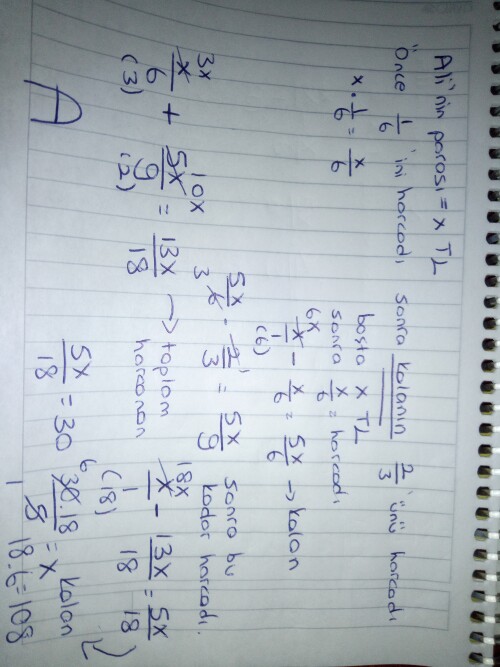 Ali'nin parası = x TL
Önce 1/6 'ini harcadı sonra kalanın 2/3 'ünü harcadı
x · 1/6 = x/6
başta x TL
sonra x/6 = harcadı
6x
x/1 - x/6 = 5x/6 → kalan
(6)
5x/6 · 2/3 = 5x/9 sonra bu kadar harcadı.
3 1
3x 10x
x/6 + 5x/9 = 13x/18 → toplam harcanan
(3) (2)
18x
x/1 - 13x/18 = 5x/18 kalan
(18)
A
5x/18 = 30
6
30.18/5 = x
1
18.6=108